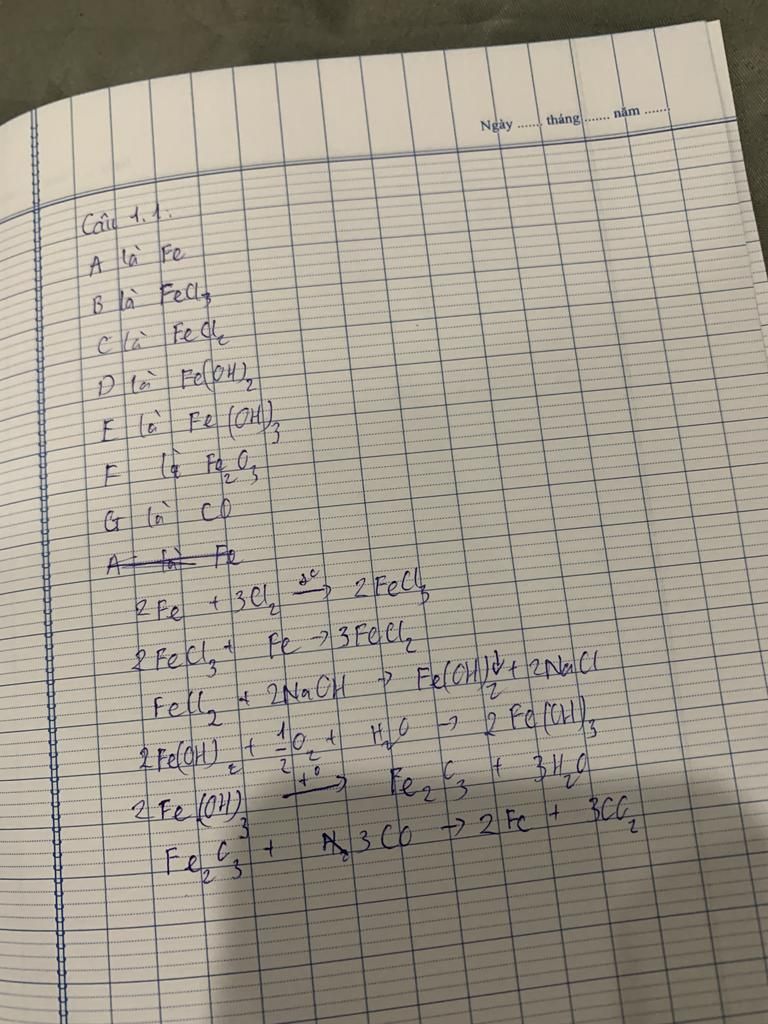 Ngày ...... tháng ...... năm ......
Câu 1.1.
A là Fe
B là FeCl₃
C là FeCl₂
D là Fe(OH)₂
E là Fe(OH)₃
F là Fe₂O₃
G là CO
A là Fe
2Fe + 3Cl₂ →(t°) 2FeCl₃
2FeCl₃ + Fe → 3FeCl₂
FeCl₂ + 2NaOH → Fe(OH)₂↓ + 2NaCl
2Fe(OH)₂ + 1/2 O₂ + H₂O → 2Fe(OH)₃
2Fe(OH)₃ →(t°) Fe₂O₃ + 3H₂O
Fe₂O₃ + 3CO → 2Fe + 3CO₂